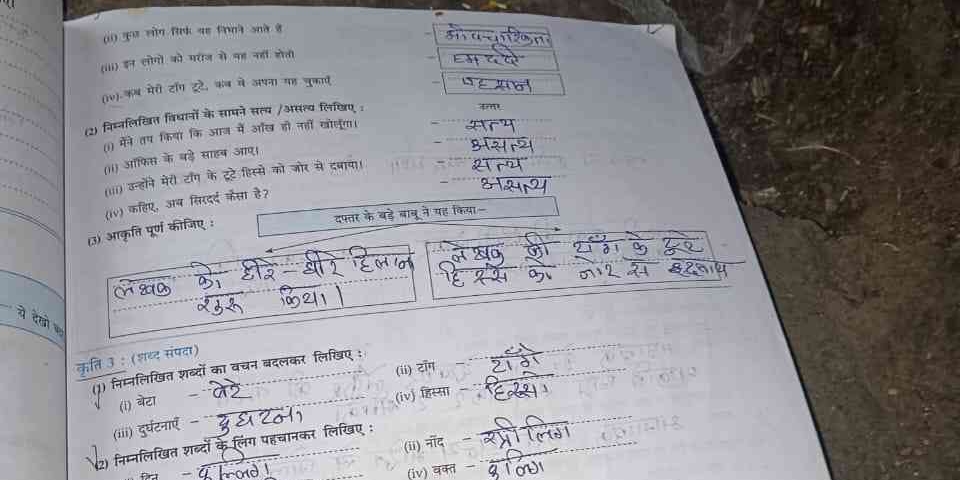 (ii) कुछ लोग सिर्फ यह निभाने आते हैं - औपचारिकता
(iii) इन लोगों को मरीज से यह नहीं होती - हमदर्दी
(iv) कब मेरी टाँग टूटे, कब वे अपना यह चुकाएँ - एहसान
(2) निम्नलिखित विधानों के सामने सत्य /असत्य लिखिए : उत्तर
(i) मैंने तय किया कि आज मैं आँख ही नहीं खोलूँगा। - सत्य
(ii) ऑफिस के बड़े साहब आए। - असत्य
(iii) उन्होंने मेरी टाँग के टूटे हिस्से को जोर से दबाया। - सत्य
(iv) कहिए, अब सिरदर्द कैसा है? - असत्य
(3) आकृति पूर्ण कीजिए :
दफ्तर के बड़े बाबू ने यह किया—
लेखक को धीरे-धीरे हिलाना
शुरू किया।
लेखक की टाँग के टूटे
हिस्से को जोर से
ये देखो
कृति 3 : (शब्द संपदा)
(1) निम्नलिखित शब्दों का वचन बदलकर लिखिए :
(i) बेटा - बेटे (ii) टाँग - टाँगे
(iii) दुर्घटनाएँ - दुघटना (iv) हिस्सा - हिस्से
(2) निम्नलिखित शब्दों के लिंग पहचानकर लिखिए :
दिन - (ii) नींद - स्त्रीलिंग
(iv) वक्त -